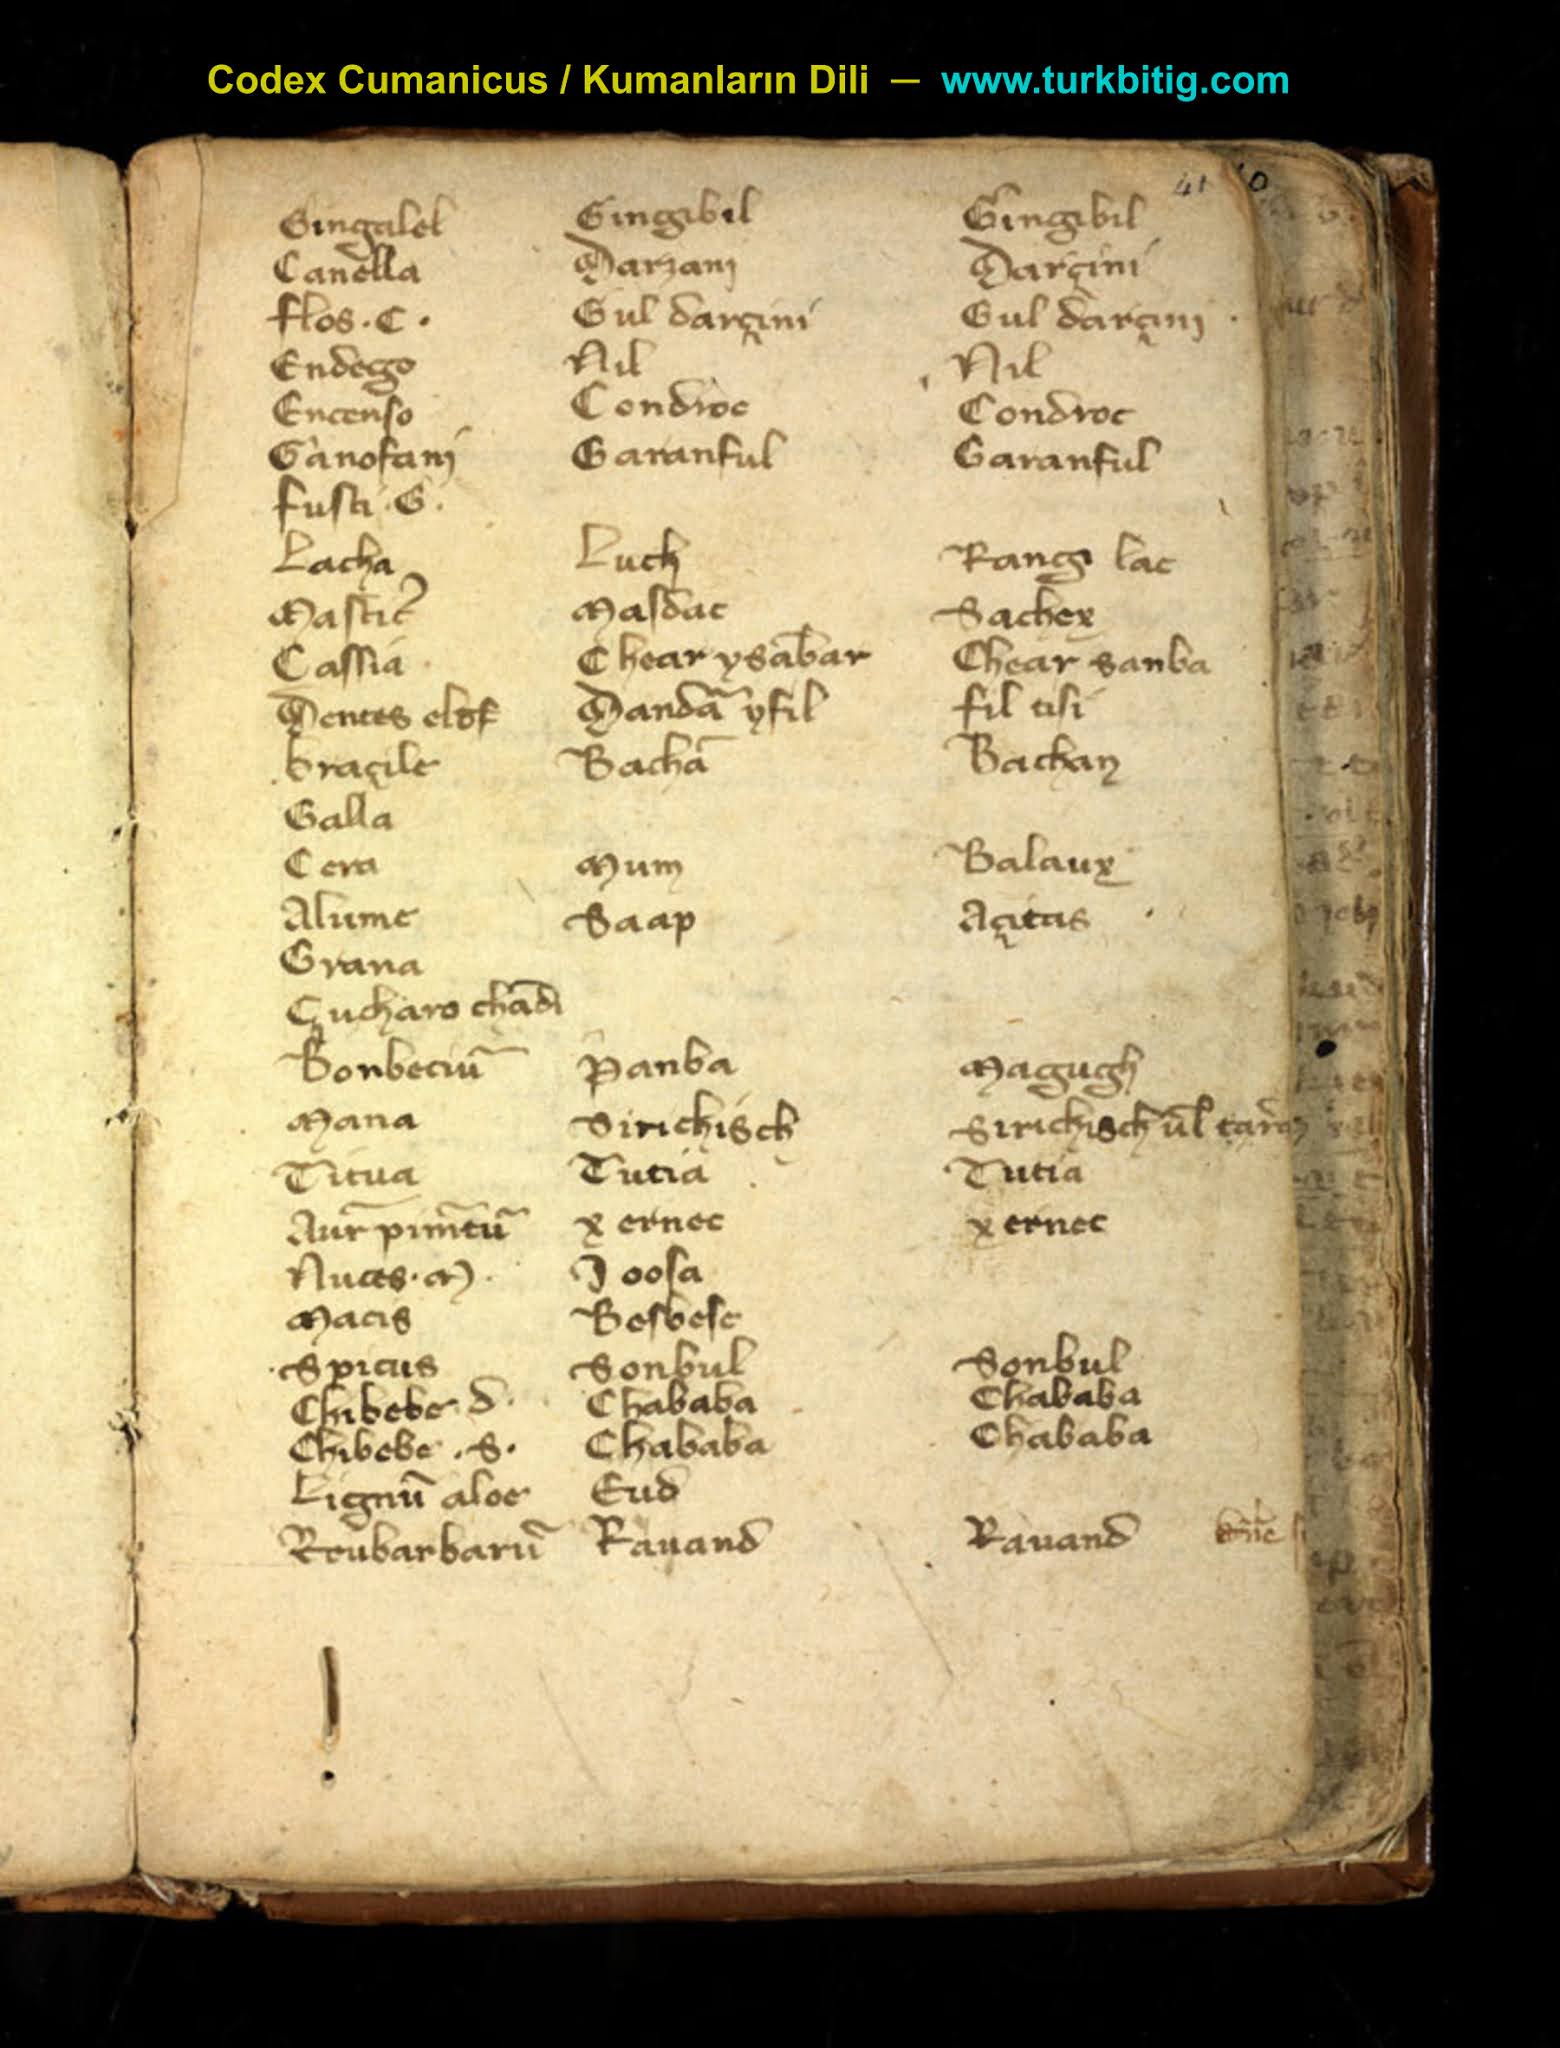 Codex Cumanicus / Kumanların Dili — www.turkbitig.com
41
Gingalel Gingibil Gingibil
Canella Darzanj Darçini
flos · C · Gul darçini Gul darçinj
Endego Nil Nil
Encenso Condroc Condroc
Ganofanj Garanful Garanful
fusti · G ·
Lacha Luch Rangi lac
Mastic̉ Masdac Sachex
Cassia Chear ysābar Chear sanba
Dentes elof Dandā yfil fil tisi
braçile Bachā Bachan
Galla
Cera Mum Balaux
Alume Saap Açitas
Grana
Çucharo chādi
Bonbeciū Panba Magugh
Mana Sirichisch Sirichisch ūl
Titua Tutia Tutia
Aur̄ pim̄tū xernec xernec
Nuces · M · Joosa
Macis Besbese
Spicus Sonbul Sonbul
Chibebe · d · Chababa Chababa
Chibebe · S · Chababa Chababa
Lignū aloe Eud
Reubarbarū Rauand Rauand